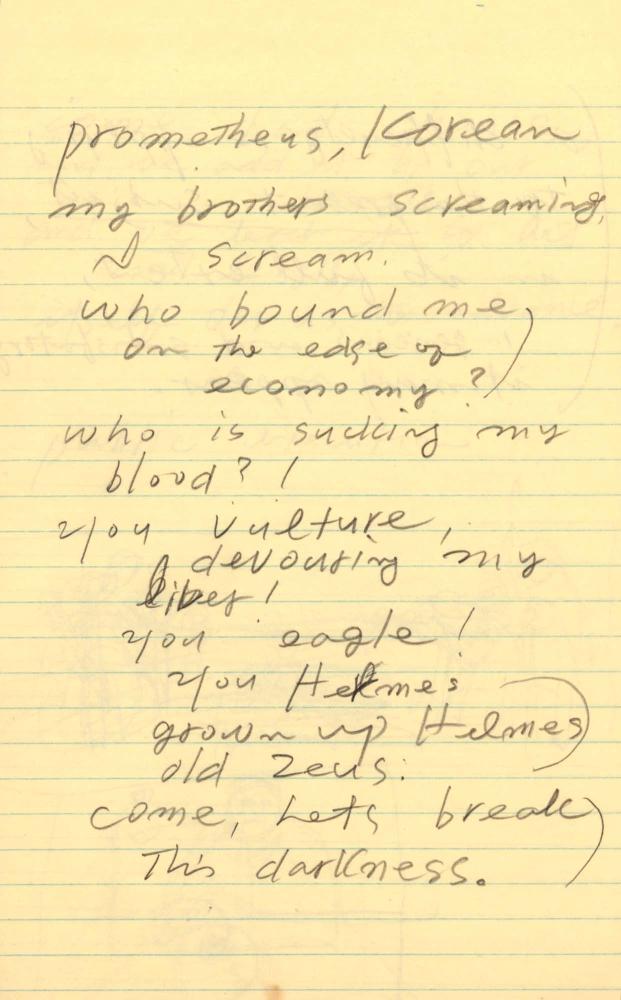 prometheus, Korean
my brothers screaming,
I scream.
who bound me
on the edge of
economy?
who is sucking my
blood? !
you vulture,
devouring my
liver!
you eagle!
you Hermes
grown up Helmes
old Zeus.
come, Lets break
This darkness.